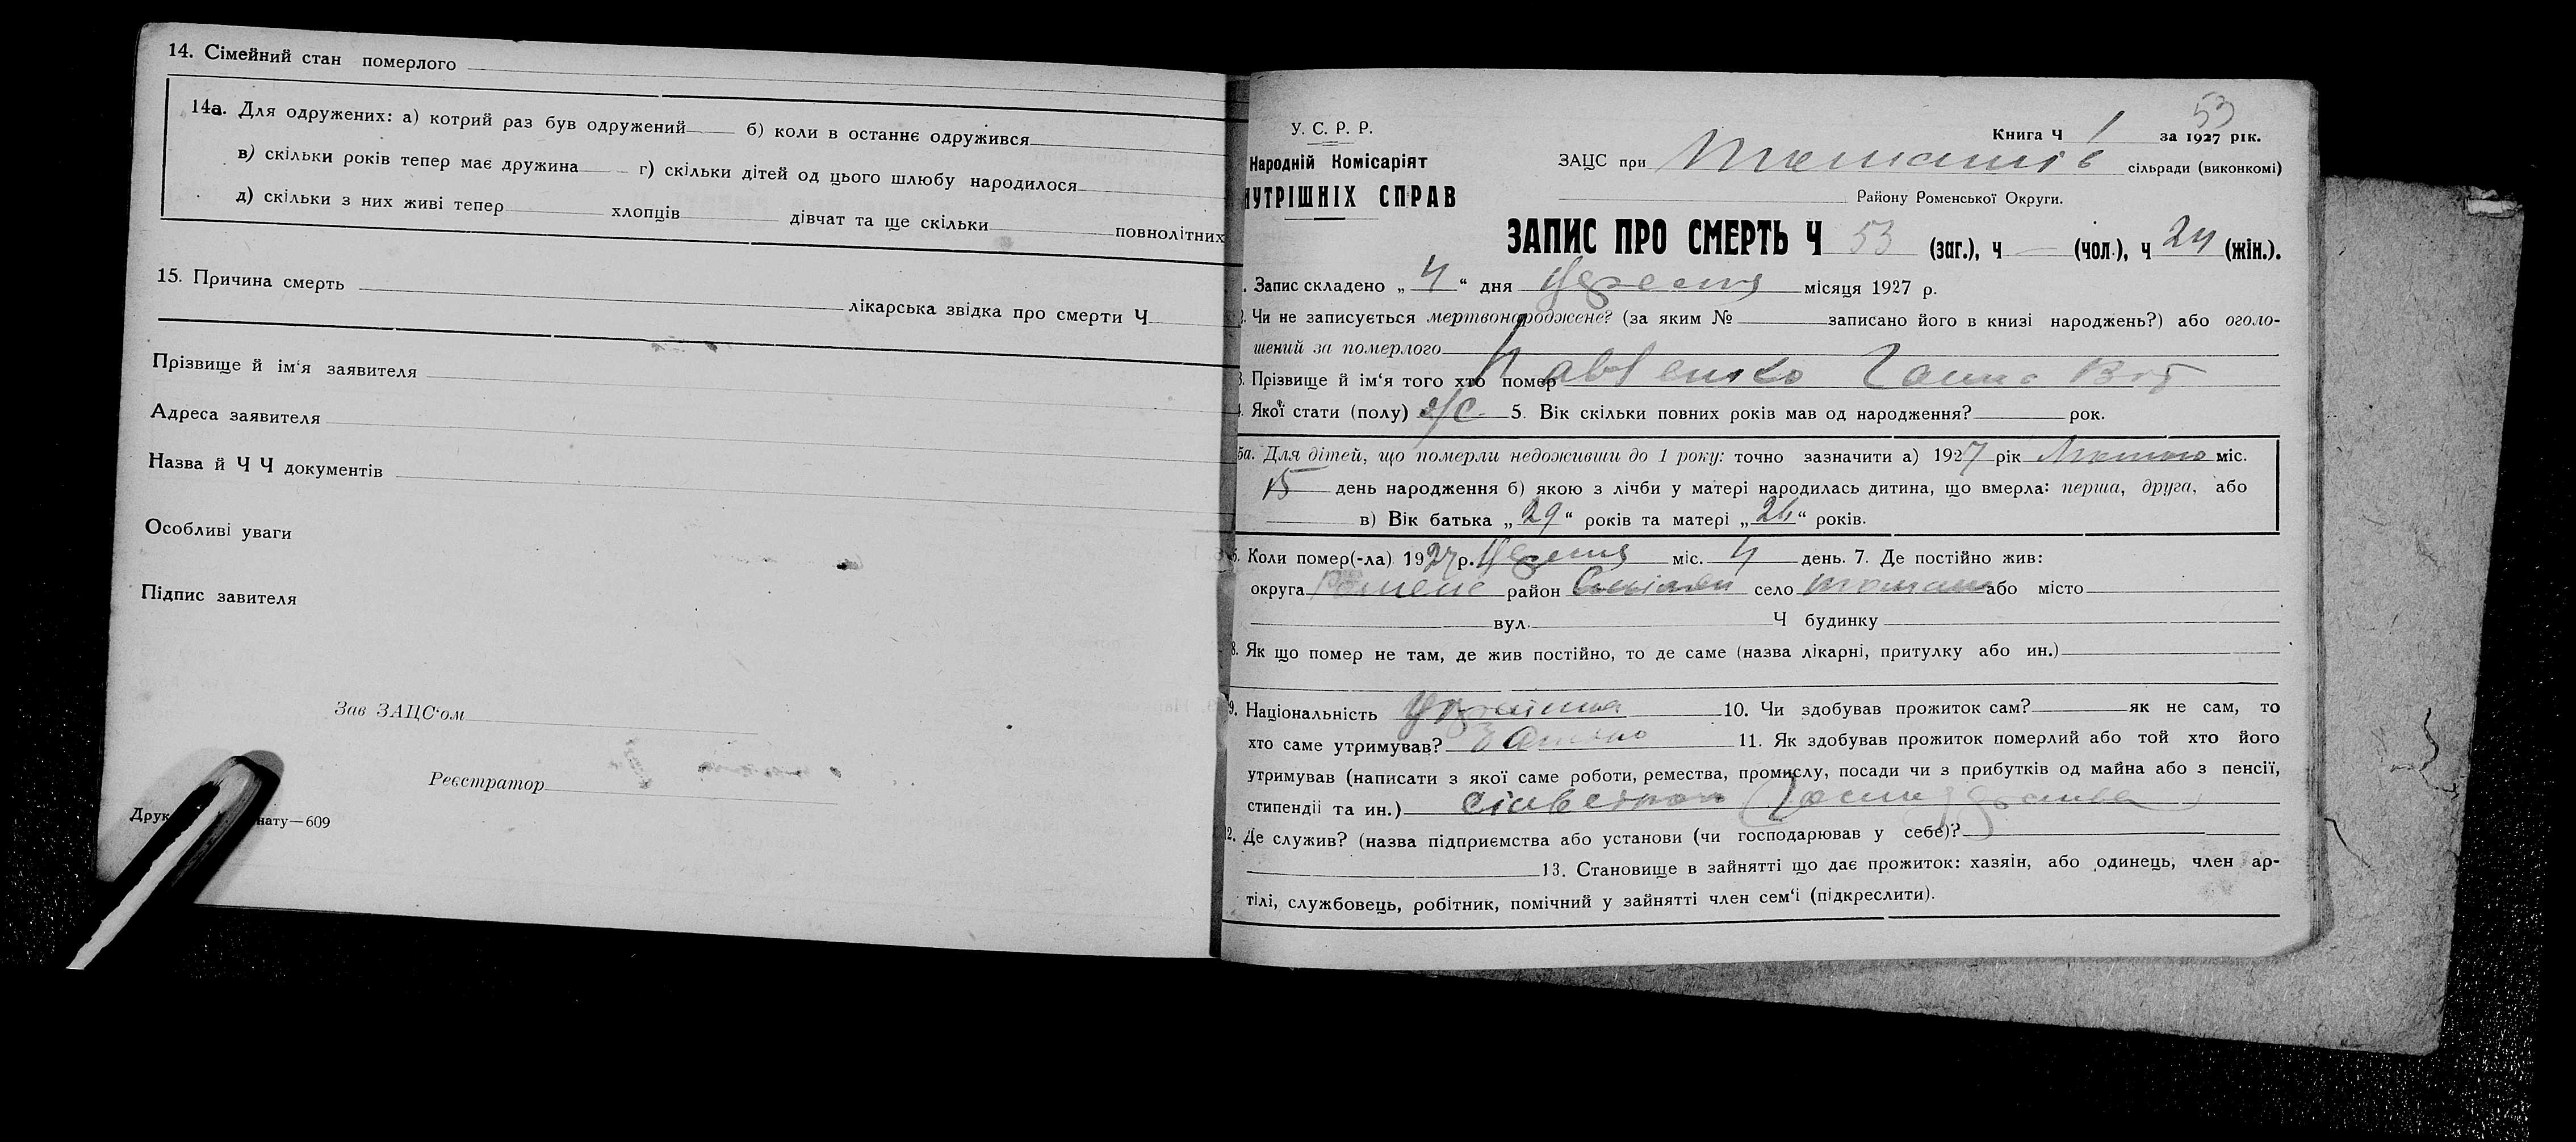 14. Сімейний стан померлого
14а. Для одружених: а) котрий раз був одружений б) коли в останнє одружився
в) скільки років тепер має дружина г) скільки дітей од цього шлюбу народилося
д) скільки з них живі тепер хлопців дівчат та ще скільки повнолітних
15. Причина смерть лікарська звідка про смерти Ч
Прізвище й ім‘я заявителя
Адреса заявителя
Назва й Ч Ч документів
Особливі уваги
Підпис завителя
Зав ЗАЦС‘ом
Реєстратор
Друк нату—609
53
У. С. Р. Р.
Книга Ч 1 за 1927 рік.
Народній Комісаріят
ЗАЦС при сільради (виконкомі)
НУТРІШНІХ СПРАВ
Району Роменської Округи.
ЗАПИС ПРО СМЕРТЬ Ч 53 (заг.), ч — (чол.), ч 24 (жін.).
. Запис складено „ 4 “ дня Вересня місяця 1927 р.
2. Чи не записується мертвонароджене? (за яким № записано його в книзі народжень?) або оголо-
шений за померлого
3. Прізвище й ім‘я того хто помер Павленко Ганна
4. Якої стати (полу) ж 5. Вік скільки повних років мав од народження? рок.
5а. Для дітей, що померли недоживши до 1 року: точно зазначити а) 1927 рік Лютого міс.
15 день народження б) якою з лічби у матері народилась дитина, що вмерла: перша, друга, або
в) Вік батька „29“ років та матері „26“ років.
6. Коли помер(-ла) 1927 р. Вересня міс. 4 день. 7. Де постійно жив:
округа Ромене район село або місто
вул. Ч будинку
8. Як що помер не там, де жив постійно, то де саме (назва лікарні, притулку або ин.)
9. Національність Україн 10. Чи здобував прожиток сам? як не сам, то
хто саме утримував? Батько 11. Як здобував прожиток померлий або той хто його
утримував (написати з якої саме роботи, ремества, промислу, посади чи з прибутків од майна або з пенсії,
стипендії та ин.)
12. Де служив? (назва підприємства або установи (чи господарював у себе)?
13. Становище в зайнятті що дає прожиток: хазяін, або одинець, член ар-
тілі, службовець, робітник, помічний у зайнятті член сем‘і (підкреслити).